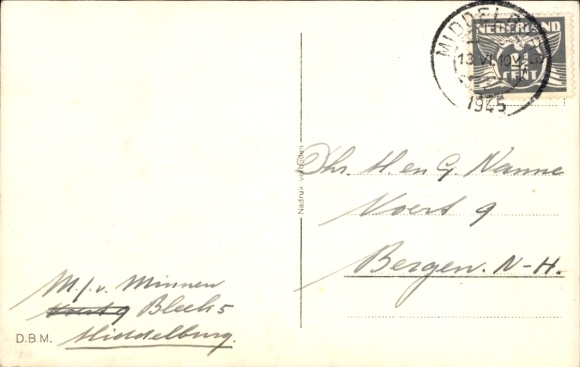 MIDDELBURG
13.VI.10
1945
NEDERLAND
CENT
Nadruk verboden
H. en G. Nanne
Voert 9
Bergen. N-H.
M. J. v. Minnen
Voert 9 Bleek 5
Middelburg.
D.B.M.